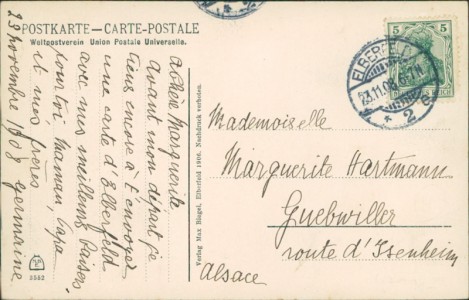 POSTKARTE — CARTE-POSTALE
Weltpostverein Union Postale Universelle.
5 5
ELBERFELD
23.11.0
* 2 c
REICH
23 Novembre 1908
Chère Marguerite
avant mon départ je
tiens encore à t'envoyer
une carte d'Elberfeld
avec mes meilleurs baisers
pour toi, Maman, Papa
et mes frères
Germaine
Verlag Max Biegel, Elberfeld 1906. Nachdruck verboten.
Mademoiselle
Marguerite Hartmann
Guebwiller
route d'Isenheim
Alsace
3562